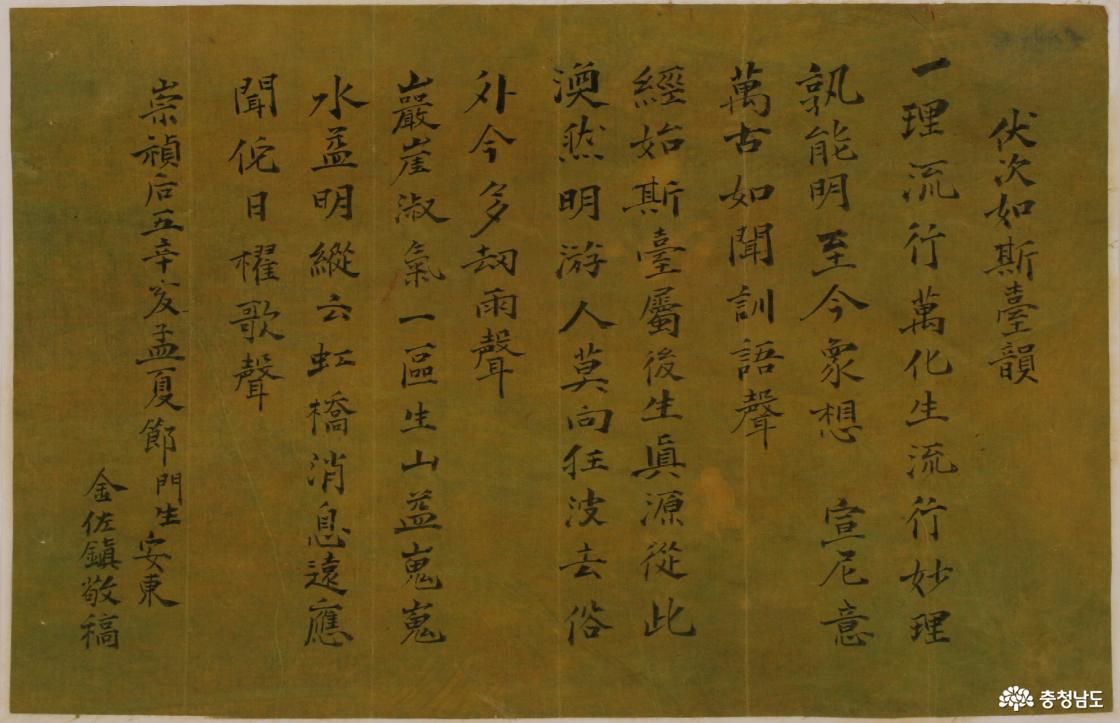 伏次如斯臺韻
一理流行萬化生流行妙理
孰能明至今象想 宣尼意
萬古如聞訓語聲
經始斯臺屬後生眞源從此
渙然明游人莫向狂波去俗
外今多刧雨聲
巖崖淑氣一區生山益嵬嵬
水益明縱云虹橋消息遠應
聞佗日櫂歌聲
崇禎后五辛亥孟夏節門生安東
金佐鎭敬稿
충청남도